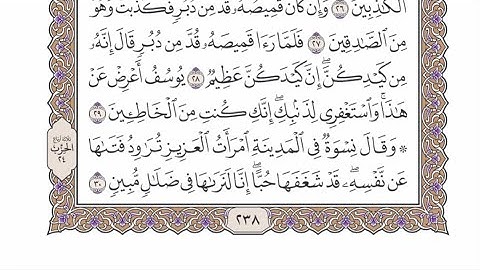 ٱلۡكَٰذِبِينَ ٢٦ وَإِن كَانَ قَمِيصُهُۥ قُدَّ مِن دُبُرٖ فَكَذَبَتۡ وَهُوَ
مِنَ ٱلصَّٰدِقِينَ ٢٧ فَلَمَّا رَءَا قَمِيصَهُۥ قُدَّ مِن دُبُرٖ قَالَ إِنَّهُۥ
مِن كَيۡدِكُنَّۖ إِنَّ كَيۡدَكُنَّ عَظِيمٞ ٢٨ يُوسُفُ أَعۡرِضۡ عَنۡ
هَٰذَاۚ وَٱسۡتَغۡفِرِي لِذَنۢبِكِۖ إِنَّكِ كُنتِ مِنَ ٱلۡخَاطِـِٔينَ ٢٩
۞ وَقَالَ نِسۡوَةٞ فِي ٱلۡمَدِينَةِ ٱمۡرَأَتُ ٱلۡعَزِيزِ تُرَٰوِدُ فَتَىٰهَا
عَن نَّفۡسِهِۦۖ قَدۡ شَغَفَهَا حُبًّاۖ إِنَّا لَنَرَىٰهَا فِي ضَلَٰلٖ مُّبِينٖ ٣٠
الحزب
٢٤
٢٣٨